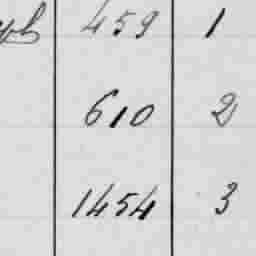 459 1
610 2
1454 3